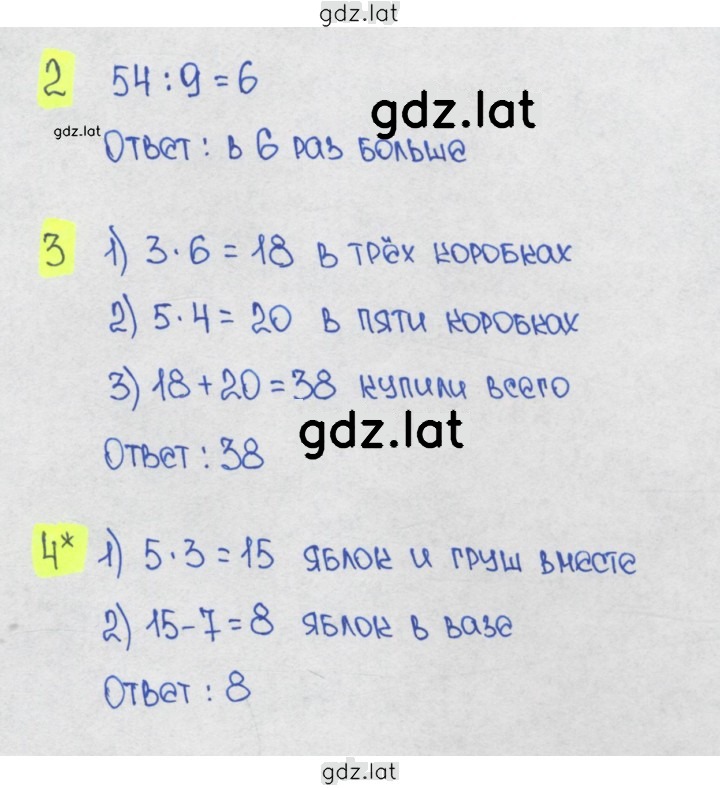 gdz.lat
2 54 : 9 = 6
gdz.lat
gdz.lat
Ответ : в 6 раз больше
3 1) 3 · 6 = 18 в трёх коробках
2) 5 · 4 = 20 в пяти коробках
3) 18 + 20 = 38 купили всего
gdz.lat
Ответ : 38
4* 1) 5 · 3 = 15 яблок и груш вместе
2) 15 - 7 = 8 яблок в вазе
Ответ : 8
gdz.lat